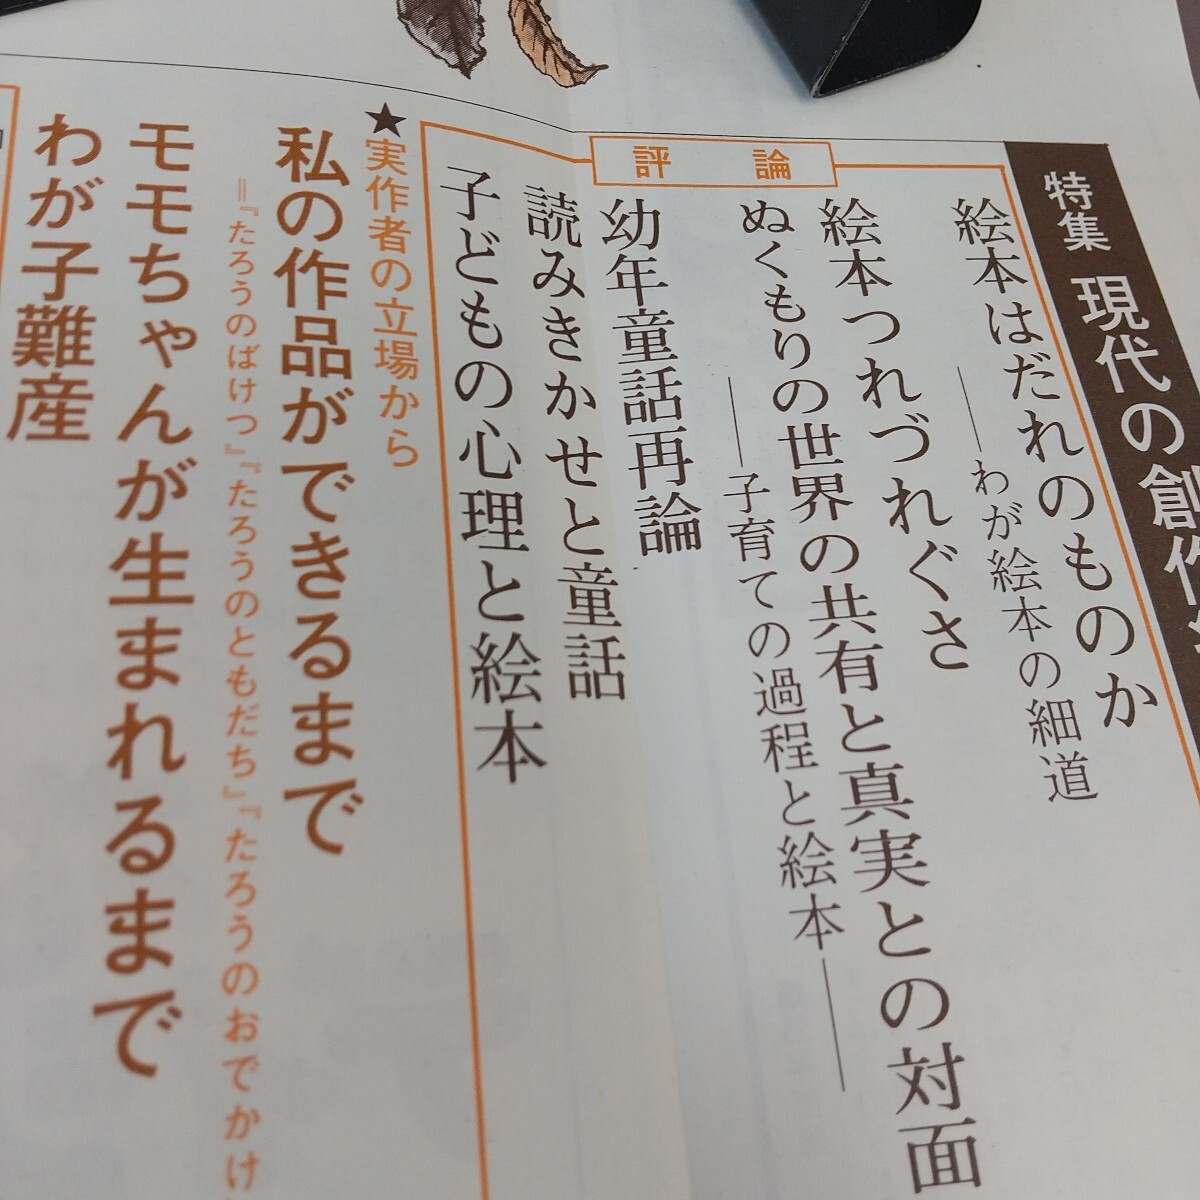 特集 現代の創作
評論
絵本はだれのものか
──わが絵本の細道
絵本つれづれぐさ
ぬくもりの世界の共有と真実との対面
──子育ての過程と絵本──
幼年童話再論
読みきかせと童話
子どもの心理と絵本
★実作者の立場から
私の作品ができるまで
=『たろうのばけつ』『たろうのともだち』『たろうのおでかけ
モモちゃんが生まれるまで
わが子難産